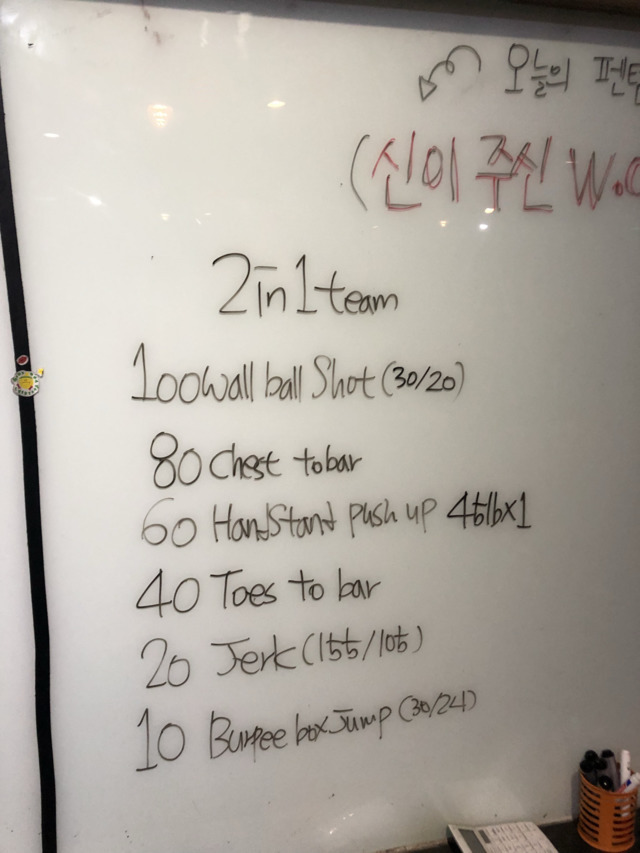 오늘의
(신이 주신 W.O
2 in 1 team
100 wall ball Shot (30/20)
80 chest to bar
60 HandStand push up 45lb×1
40 Toes to bar
20 Jerk (155/105)
10 Burpee box Jump (30/24)